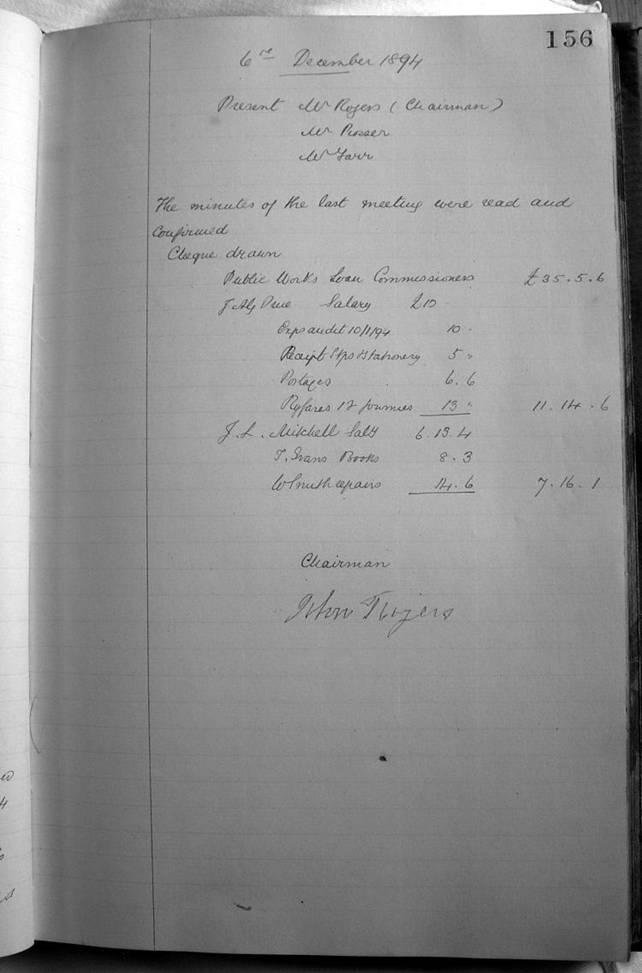 156
6th December 1894
Present Mr Rogers (Chairman)
Mr Prosser
Mr Farr
The minutes of the last meeting were read and
confirmed
Cheque drawn
Public Works Loan Commissioners £35.5.6
J Alf Salary £10
Exps audit 10/1/94 10 "
Receipt Stps Stationery 5 "
Postages 6.6
Ryfares 12 journies 13 " 11.14.6
J. L. Mitchell Saly 6.13.4
T. Evans Books 8.3
W Smith repairs 14.6 7.16.1
Chairman
John Rogers